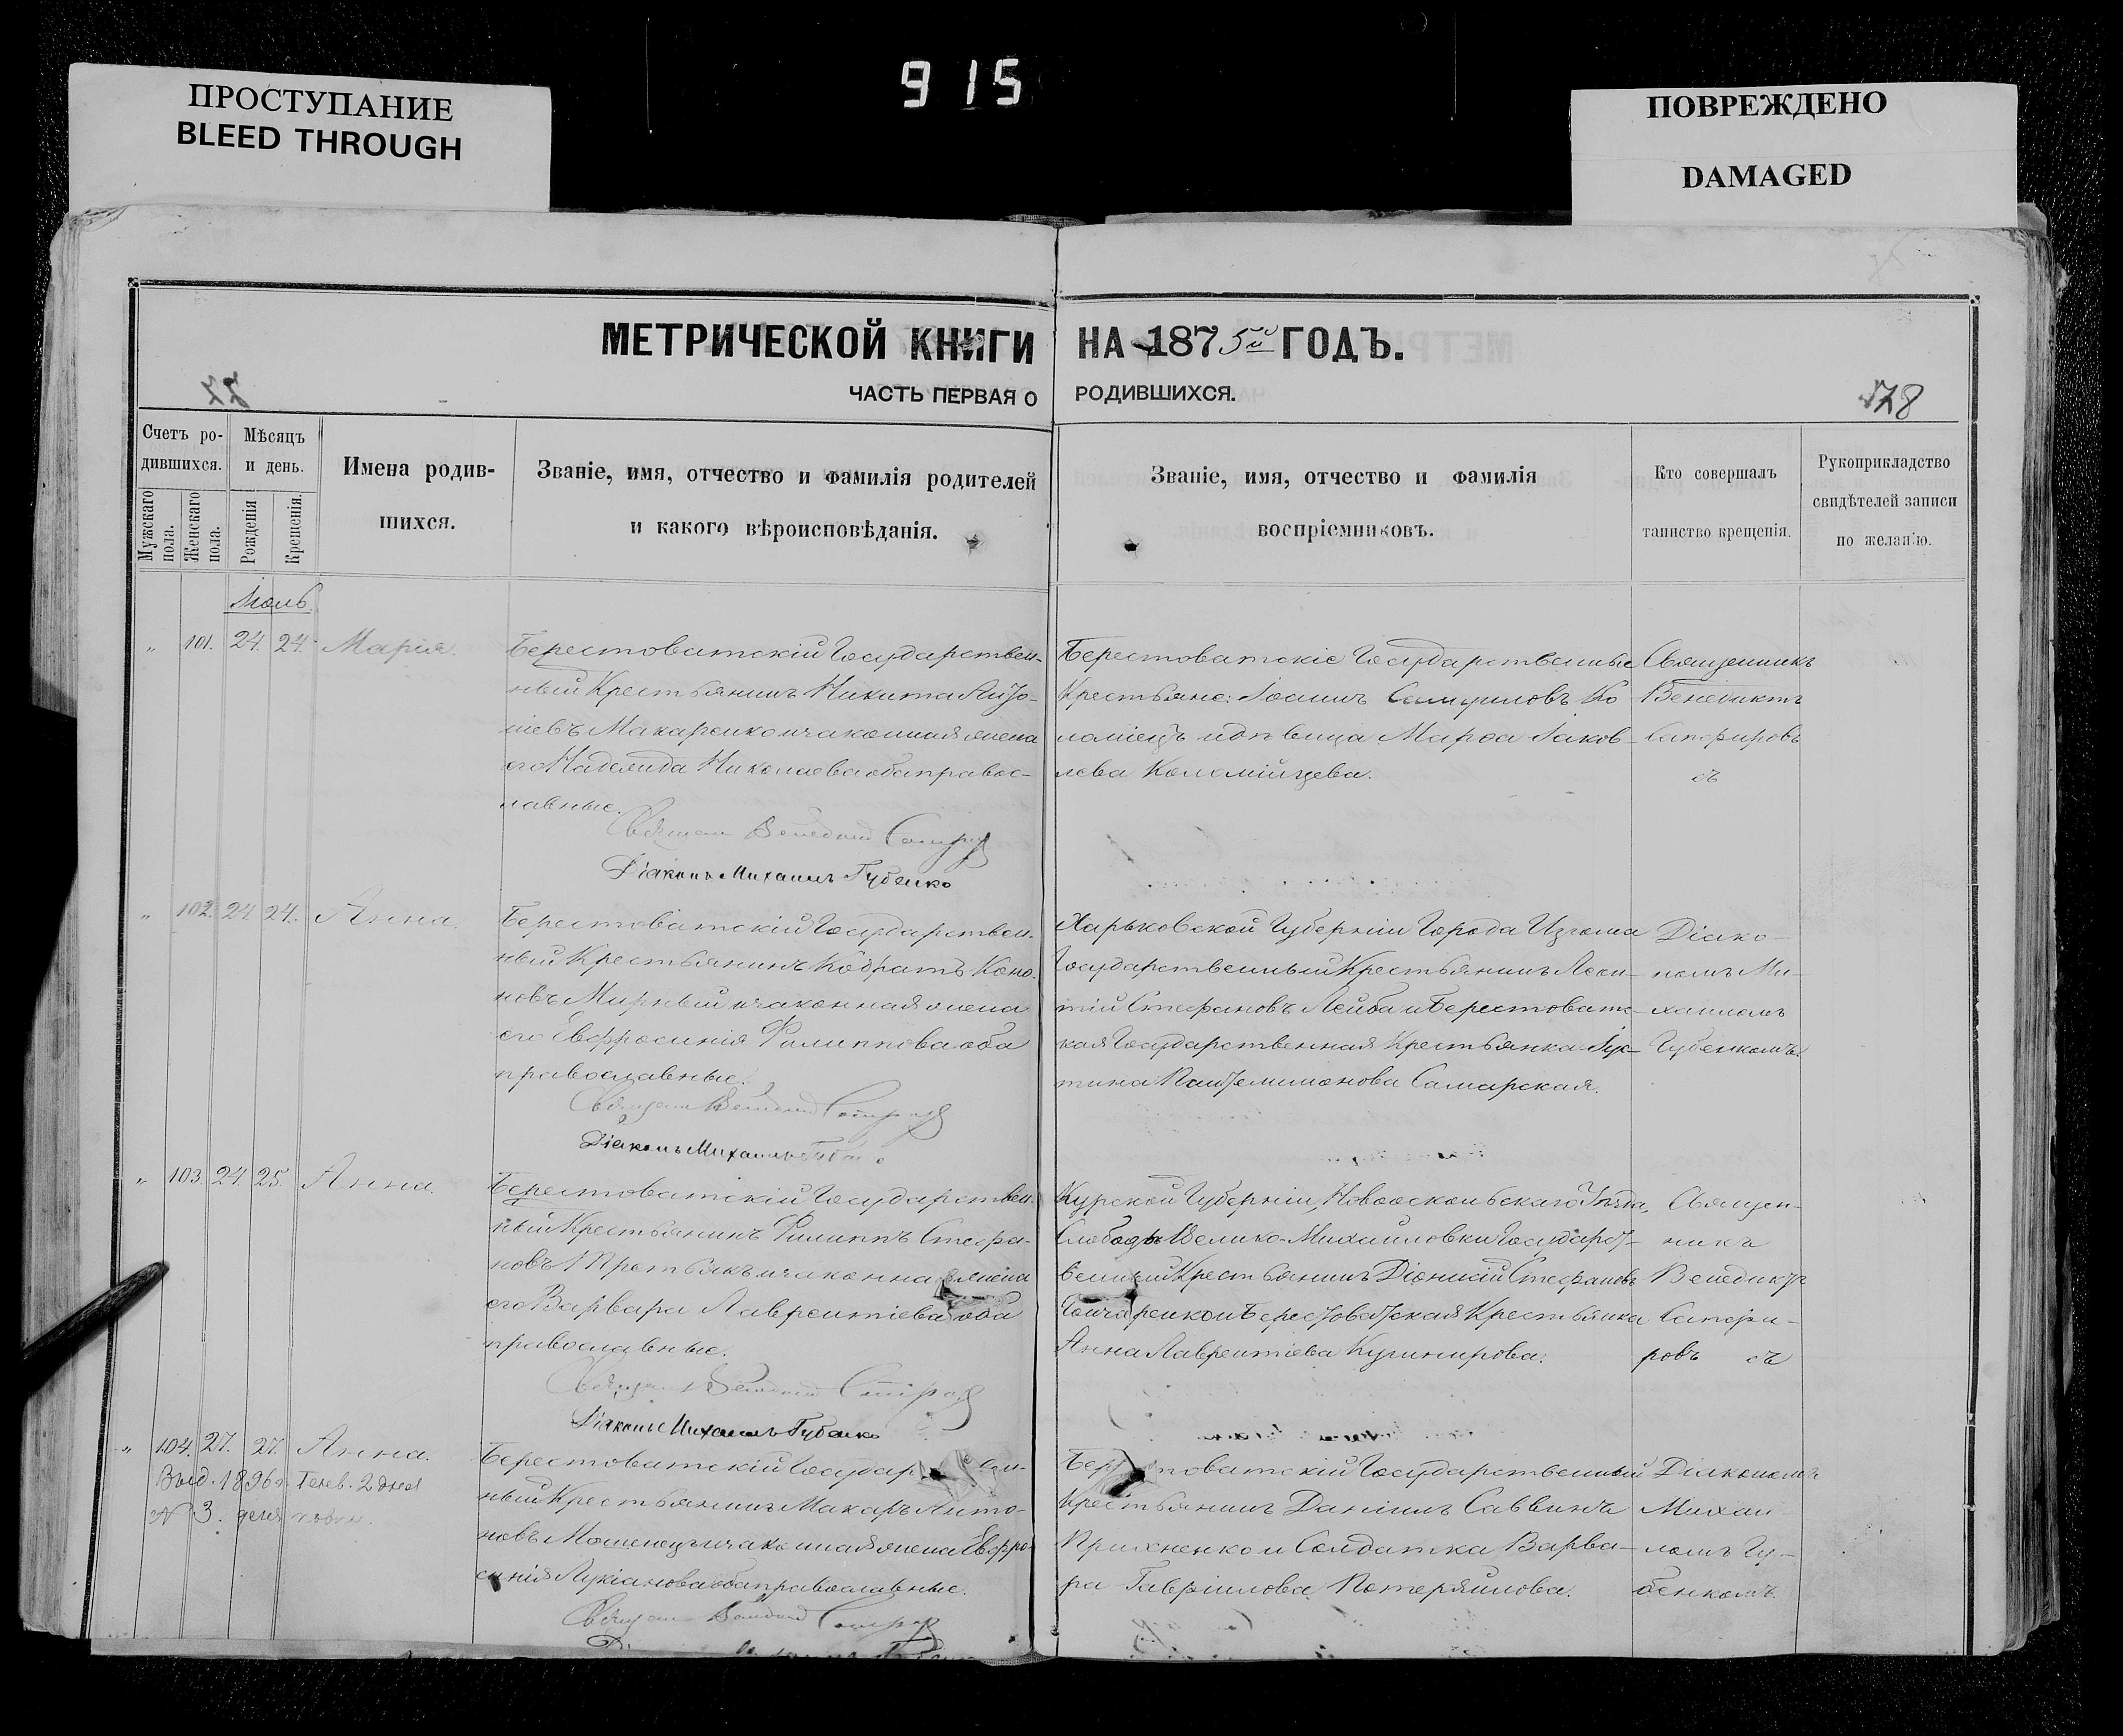 915
ПРОСТУПАНИЕ
BLEED THROUGH
ПОВРЕЖДЕНО
DAMAGED
МЕТРИЧЕСКОЙ КНИГИ НА 1875й ГОДЪ.
ЧАСТЬ ПЕРВАЯ О РОДИВШИХСЯ.
Счетъ ро-
дившихся.
Мужскаго пола.
Женскаго пола.
Мѣсяцъ
и день.
Рожденія
Крещенія.
Имена родив-
шихся.
Званіе, имя, отчество и фамилія родителей
и какого вѣроисповѣданія.
Званіе, имя, отчество и фамилія
воспріемниковъ.
Кто совершалъ
таинство крещенія.
Рукоприкладство
свидѣтелей записи
по желанію.
Іюль.
„ 101. 24. 24. Марія.
Берестоватскій Государствен-
ный Крестьянинъ Никита Анто-
ніевъ Макаренко и законная жена
его Надежда Николаева оба правос-
лавные.
Діаконъ Михаилъ Губенко
Берестоватскіе Государственные
Крестьяне: Іоаннъ Ко
ломіецъ и дѣвица Марѳа Іаков-
лева Коломійцева.
Священникъ
Венедиктъ
Сапфировъ
съ
„ 102. 24 24. Анна.
Берестоватскій Государствен-
ный Крестьянинъ Кодратъ Коно-
новъ Мирный и законная жена
его Евфросинія Филиппова оба
православные.
Діаконъ Михаилъ
Харьковской Губерніи Города Изюма
Государственный Крестьянинъ Леон-
тій Стефановъ Лейба и Берестоватс-
кая Государственная Крестьянка Іус-
тина Пантелимонова Самарская.
Діако-
номъ Ми-
хаиломъ
Губенкомъ.
„ 103. 24. 25. Анна.
Берестоватскій Государствен-
ный Крестьянинъ Филиппъ Стефа-
новъ и законная жена
его Варвара Лаврентіева оба
православные.
Діаконъ Михаилъ Губенко
Курской Губерніи, Новооскольскаго Уѣзда,
Слободы Велико-Михайловки Государст-
венный Крестьянинъ Діонисій Стефановъ
Гончаренко и Берестоватская Крестьянка
Анна Лаврентіева Кушнирова.
Священ-
никъ
Венедиктъ
Сапфи-
ровъ съ
„ 104. 27. 27. Анна.
Выд. 1896 г. Генв. 2 дня
№ 3.
Берестоватскій Государ
ный Крестьянинъ Макаръ Анто-
новъ Мошенецъ и законная жена Евфро-
синія Лукіанова оба православные.
Берестоватскій Государственный
Крестьянинъ Даніилъ Саввинъ
и Солдатка Варва-
ра Гавріилова Потеряйлова.
Діакономъ
Михаи-
ломъ Гу-
бенкомъ.